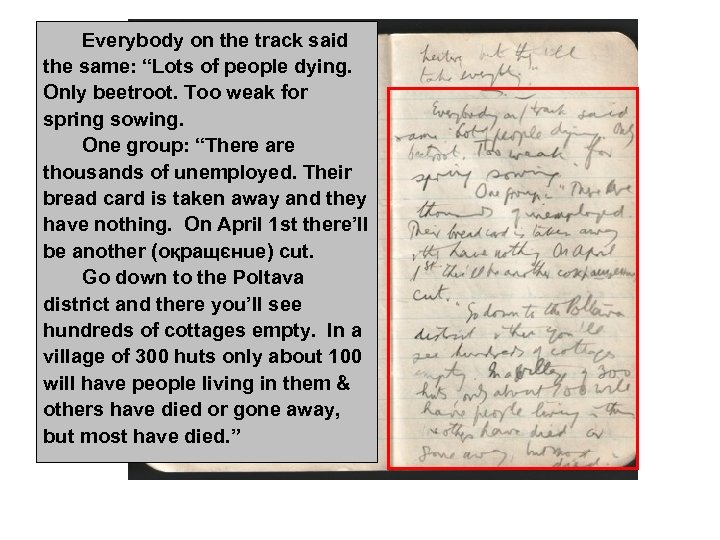 Everybody on the track said
the same: “Lots of people dying.
Only beetroot. Too weak for
spring sowing.
One group: “There are
thousands of unemployed. Their
bread card is taken away and they
have nothing. On April 1st there’ll
be another (оқращєнue) cut.
Go down to the Poltava
district and there you’ll see
hundreds of cottages empty. In a
village of 300 huts only about 100
will have people living in them &
others have died or gone away,
but most have died. ”
but they'll
take everything"
Everybody on track said
same. Lots people dying. Only
beetroot. Too weak for
spring sowing.
One group: "There are
thousands of unemployed.
Their bread card is taken away
, they have nothing On April
1st there'll be another
cut.
"Go down to the Poltava
district & there you'll
see hundreds of cottages
empty. In a village of 300
huts only about 100 will
have people living in them
& others have died or
gone away, but most
died.